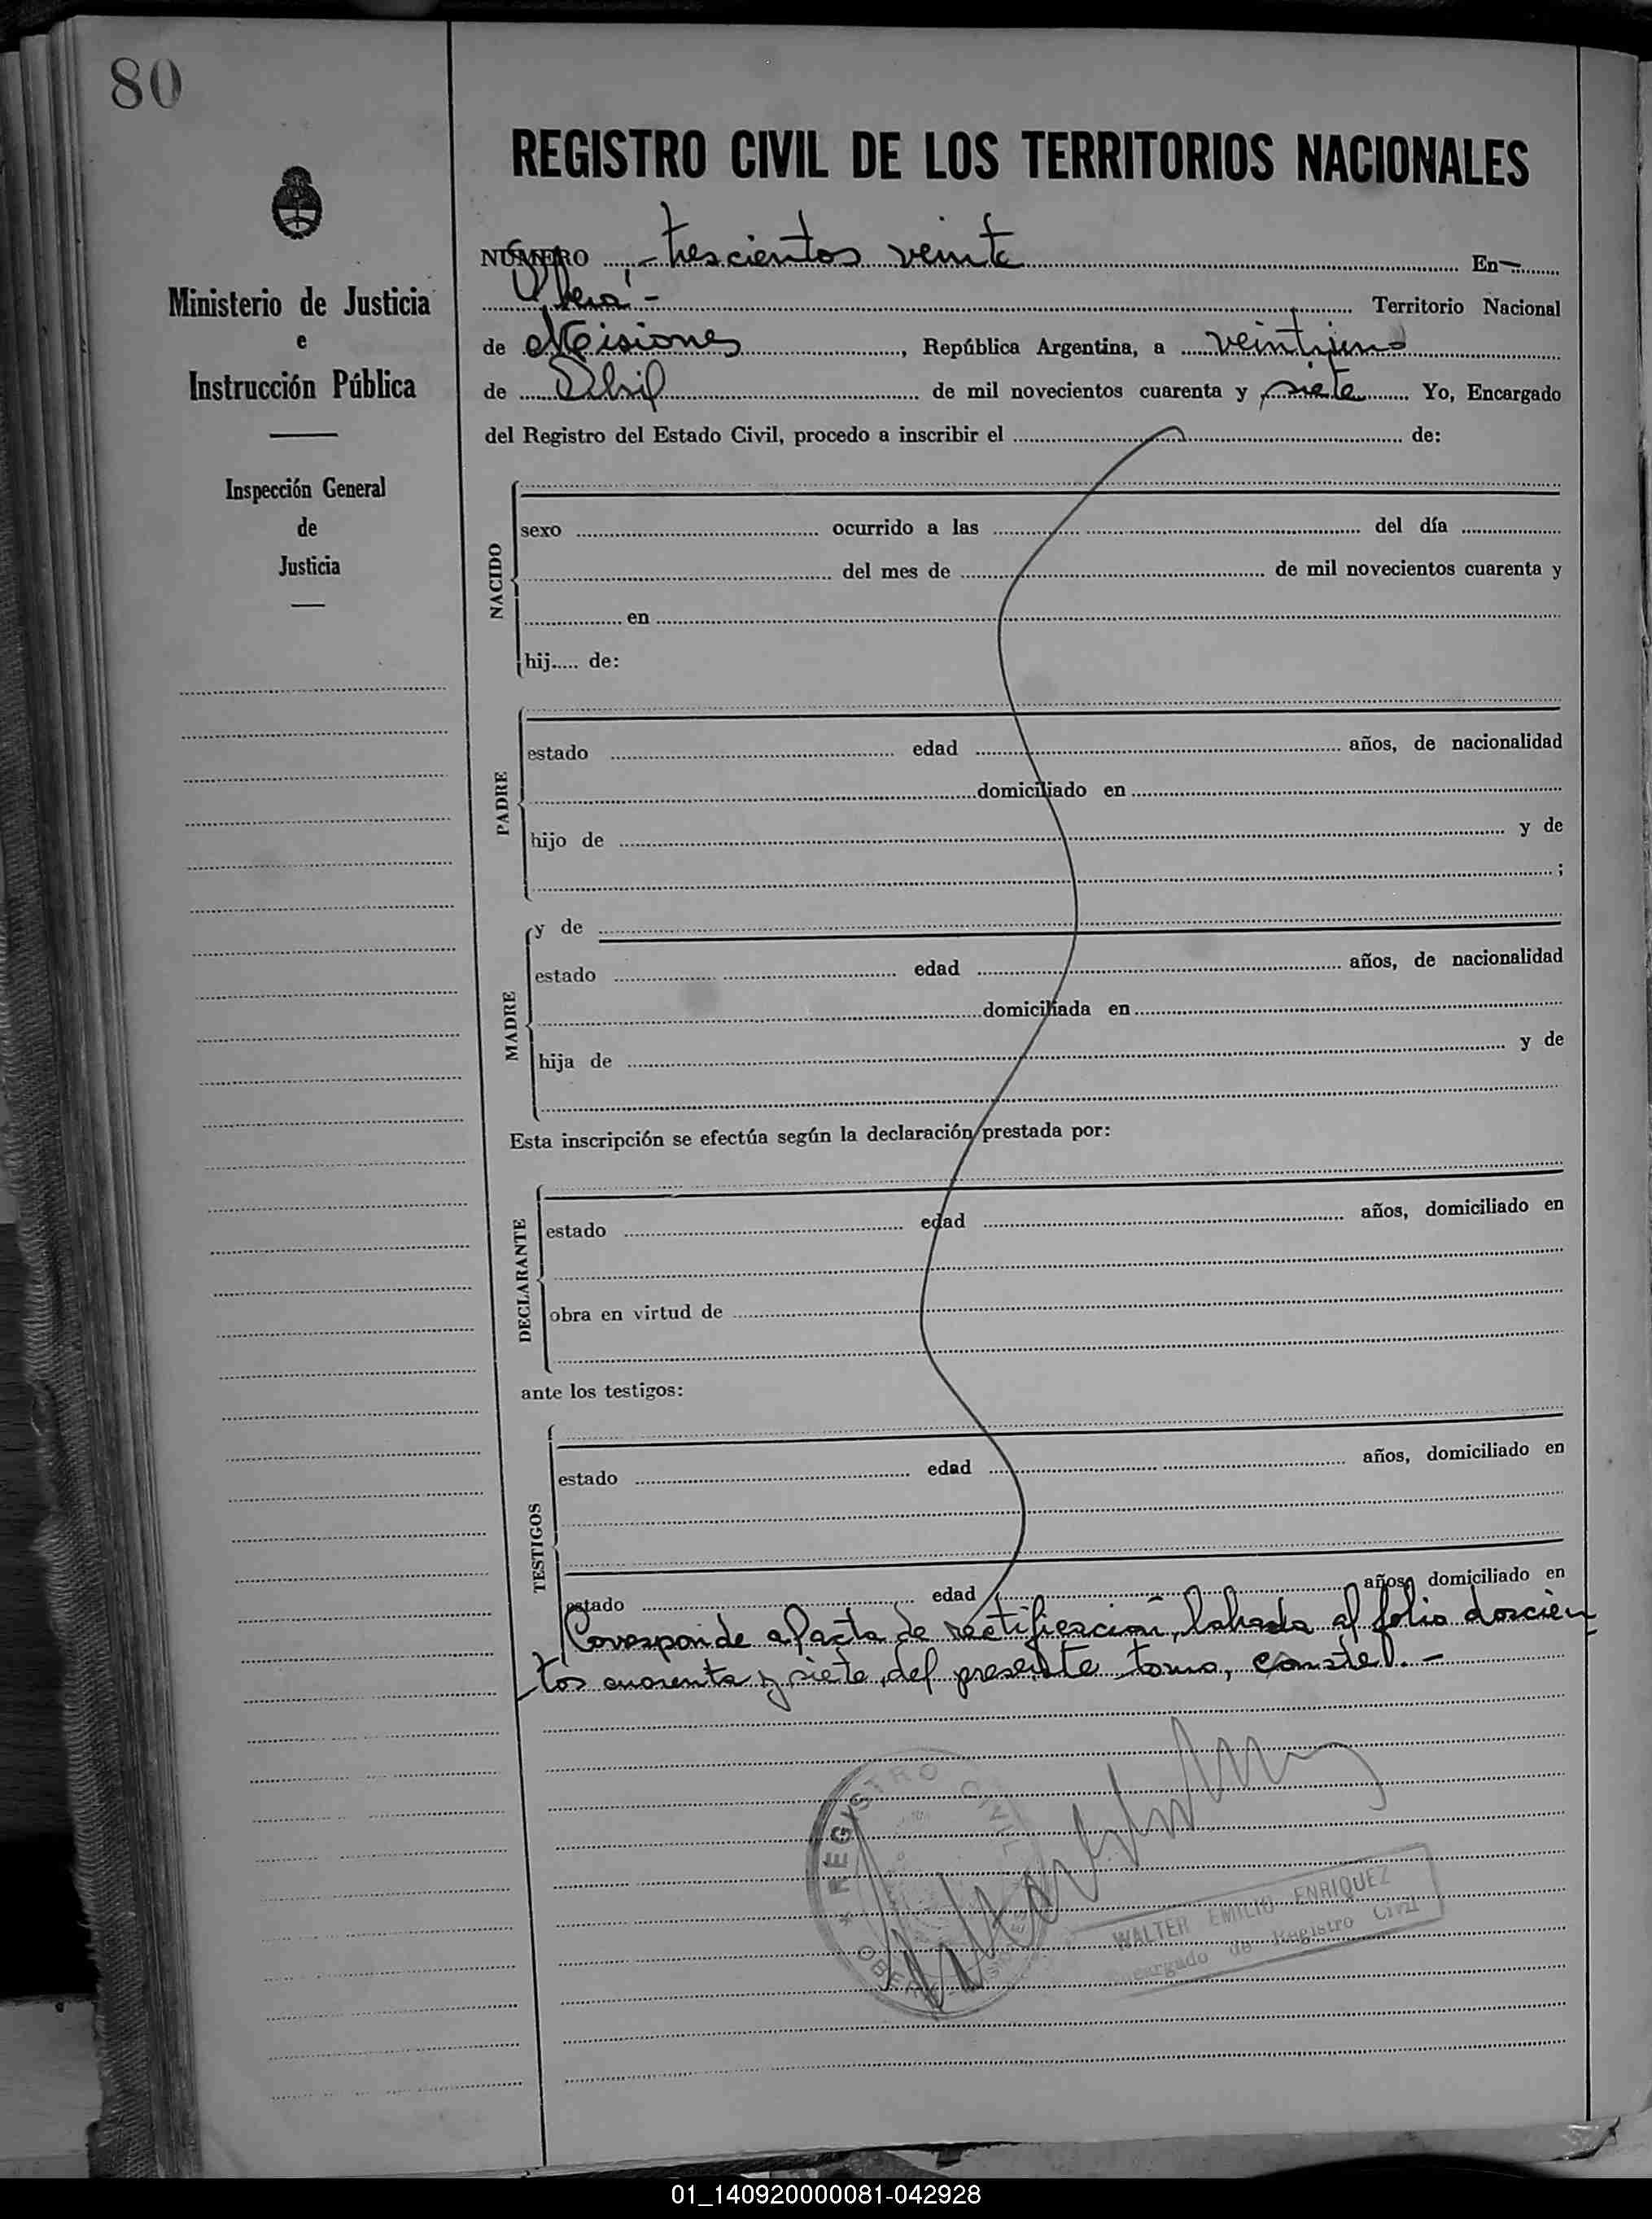 80
REGISTRO CIVIL DE LOS TERRITORIOS NACIONALES
Ministerio de Justicia
e
Instrucción Pública
Inspección General
de
Justicia
NÚMERO trescientos veinte En
Oberá Territorio Nacional
de Misiones, República Argentina, a veintiuno
de Abril de mil novecientos cuarenta y siete Yo, Encargado
del Registro del Estado Civil, procedo a inscribir el de:
NACIDO
sexo ocurrido a las del día
del mes de de mil novecientos cuarenta y
en
hij..... de:
PADRE
estado edad años, de nacionalidad
domiciliado en
hijo de y de
;
MADRE
y de
estado edad años, de nacionalidad
domiciliada en
hija de y de
Esta inscripción se efectúa según la declaración prestada por:
DECLARANTE
estado edad años, domiciliado en
obra en virtud de
ante los testigos:
TESTIGOS
estado edad años, domiciliado en
estado edad años, domiciliado en
Corresponde al acta de rectificación, labrada al folio doscien
tos cuarenta y siete, del presente tomo, conste.-
* REGISTRO CIVIL *
OBERÁ
WALTER EMILIO ENRIQUEZ
Encargado de Registro Civil
01_140920000081-042928